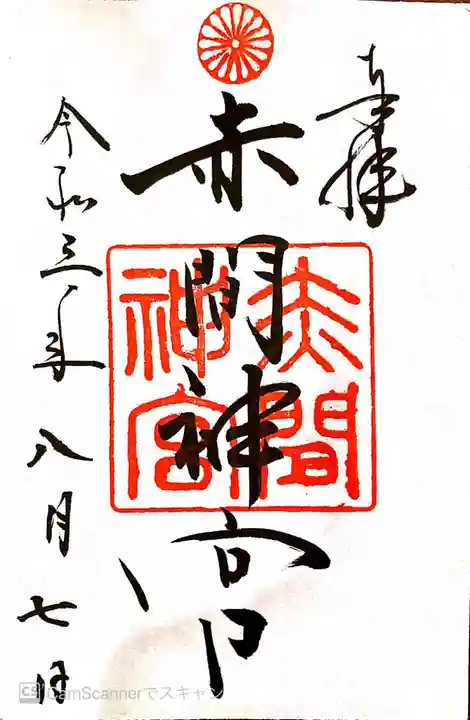 奉拝
赤間神宮
赤間
神宮
令和三年八月七日
CS CamScannerでスキャン